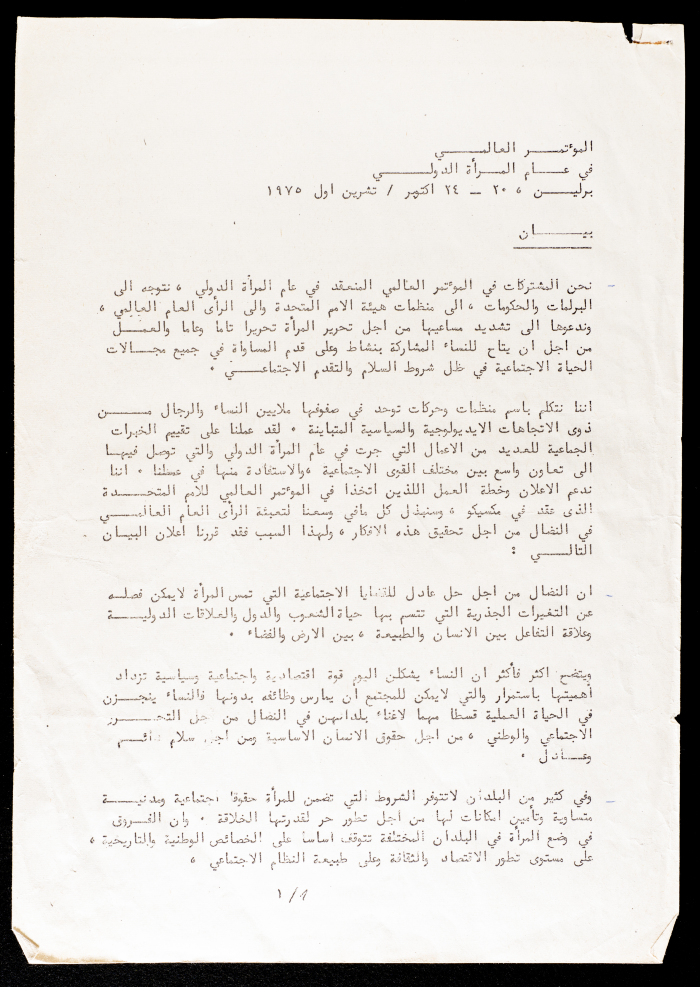 المؤتمر العالمي
في عام المرأة الدولي
برلين ، ٢٠ - ٢٤ اكتوبر / تشرين اول ١٩٧٥
بيان
نحن المشتركات في المؤتمر العالمي المنعقد في عام المرأة الدولي ، نتوجه الى
البرلمات والحكومات ، الى منظمات هيئة الامم المتحدة والى الرأى العام العالمي ،
وندعوها الى تشديد مساعيها من اجل تحرير المرأة تحريرا تاما وعاما والعمل
من اجل ان يتاح للنساء المشاركة بنشاط وعلى قدم المساواة في جميع مجالات
الحياة الاجتماعية في ظل شروط السلام والتقدم الاجتماعي .
اننا نتكلم باسم منظمات وحركات توحد في صفوفها ملايين النساء والرجال من
ذوى الاتجاهات الايديولوجية والسياسية المتباينة . لقد عملنا على تقييم الخبرات
الجماعية للعديد من الاعمال التي جرت في عام المرأة الدولي والتي توصل فيها
الى تعاون واسع بين مختلف القوى الاجتماعية ،والاستفادة منها في عملنا . اننا
ندعم الاعلان وخطة العمل اللذين اتخذا في المؤتمر العالمي للامم المتحدة
الذى عقد في مكسيكو ، وسنبذل كل مافي وسعنا لتعبئة الرأى العام العالمي
في النضال من اجل تحقيق هذه الافكار ، ولهذا السبب فقد قررنا اعلان البيان
التالي :
- ان النضال من اجل حل عادل للقضايا الاجتماعية التي تمس المرأة لايمكن فصله
عن التغيرات الجذرية التي تتسم بها حياة الشعوب والدول والعلاقات الدولية
وعلاقة التفاعل بين الانسان والطبيعة ، بين الارض والفضاء .
ويتضح اكثر فأكثر ان النساء يشكلن اليوم قوة اقتصادية واجتماعية وسياسية تزداد
أهميتها باستمرار والتي لايمكن للمجتمع أن يمارس وظائفه بدونها فالنساء ينجزن
في الحياة العملية قسطا مهما لاغناء بلدانهن في النضال من اجل التحرر
الاجتماعي والوطني ، من اجل حقوق الانسان الاساسية ومن اجل سلام دائم
وعادل .
- وفي كثير من البلدان لاتتوفر الشروط التي تضمن للمرأة حقوقا اجتماعية ومدنية
متساوية وتأمين امكانات لها من اجل تطور حر لقدرتها الخلاقة . وان الفروق
في وضع المرأة في البلدان المختلفة تتوقف اساسا على الخصائص الوطنية والتاريخية ،
على مستوى تطور الاقتصاد والثقافة وعلى طبيعة النظام الاجتماعي ،